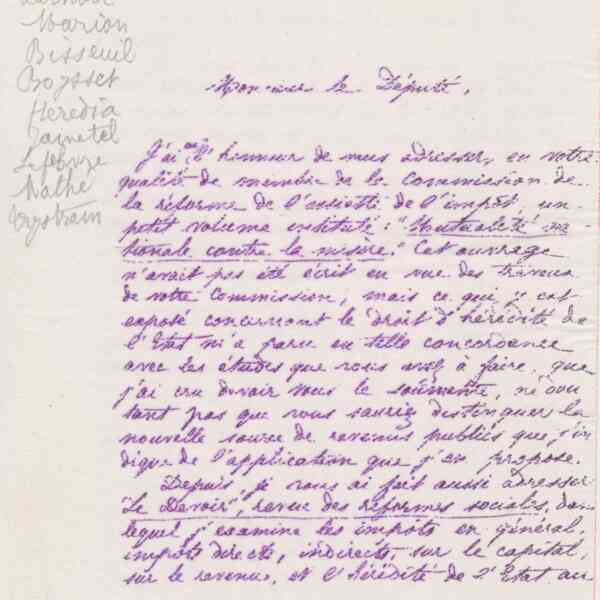 Marion
Bisseuil
Boysset
Heredia
Jametel
Lefebvre
Nalhe
Trystram
Monsieur le Député,
J'ai eu l'honneur de vous adresser, en votre
qualité de membre de la Commission de
la réforme de l'assiette de l'impôt, un
petit volume intitulé : "Mutualité na-
tionale contre la misère." Cet ouvrage
n'avait pas été écrit en vue des travaux
de votre Commission, mais ce qui y est
exposé concernant le droit d'hérédité de
l'Etat m'a paru en telle concordance
avec les études que vous avez à faire, que
j'ai cru devoir vous le soumettre, ne dou
tant pas que vous sauriez distinguer la
nouvelle source de revenus publics que j'in
dique de l'application que j'en propose.
Depuis, je vous ai fait aussi adresser
"Le Devoir", revue des réformes sociales, dans
lequel j'examine les impôts en général,
impôts directs, indirects, sur le capital,
sur le revenu, et l'hérédité de l'Etat au